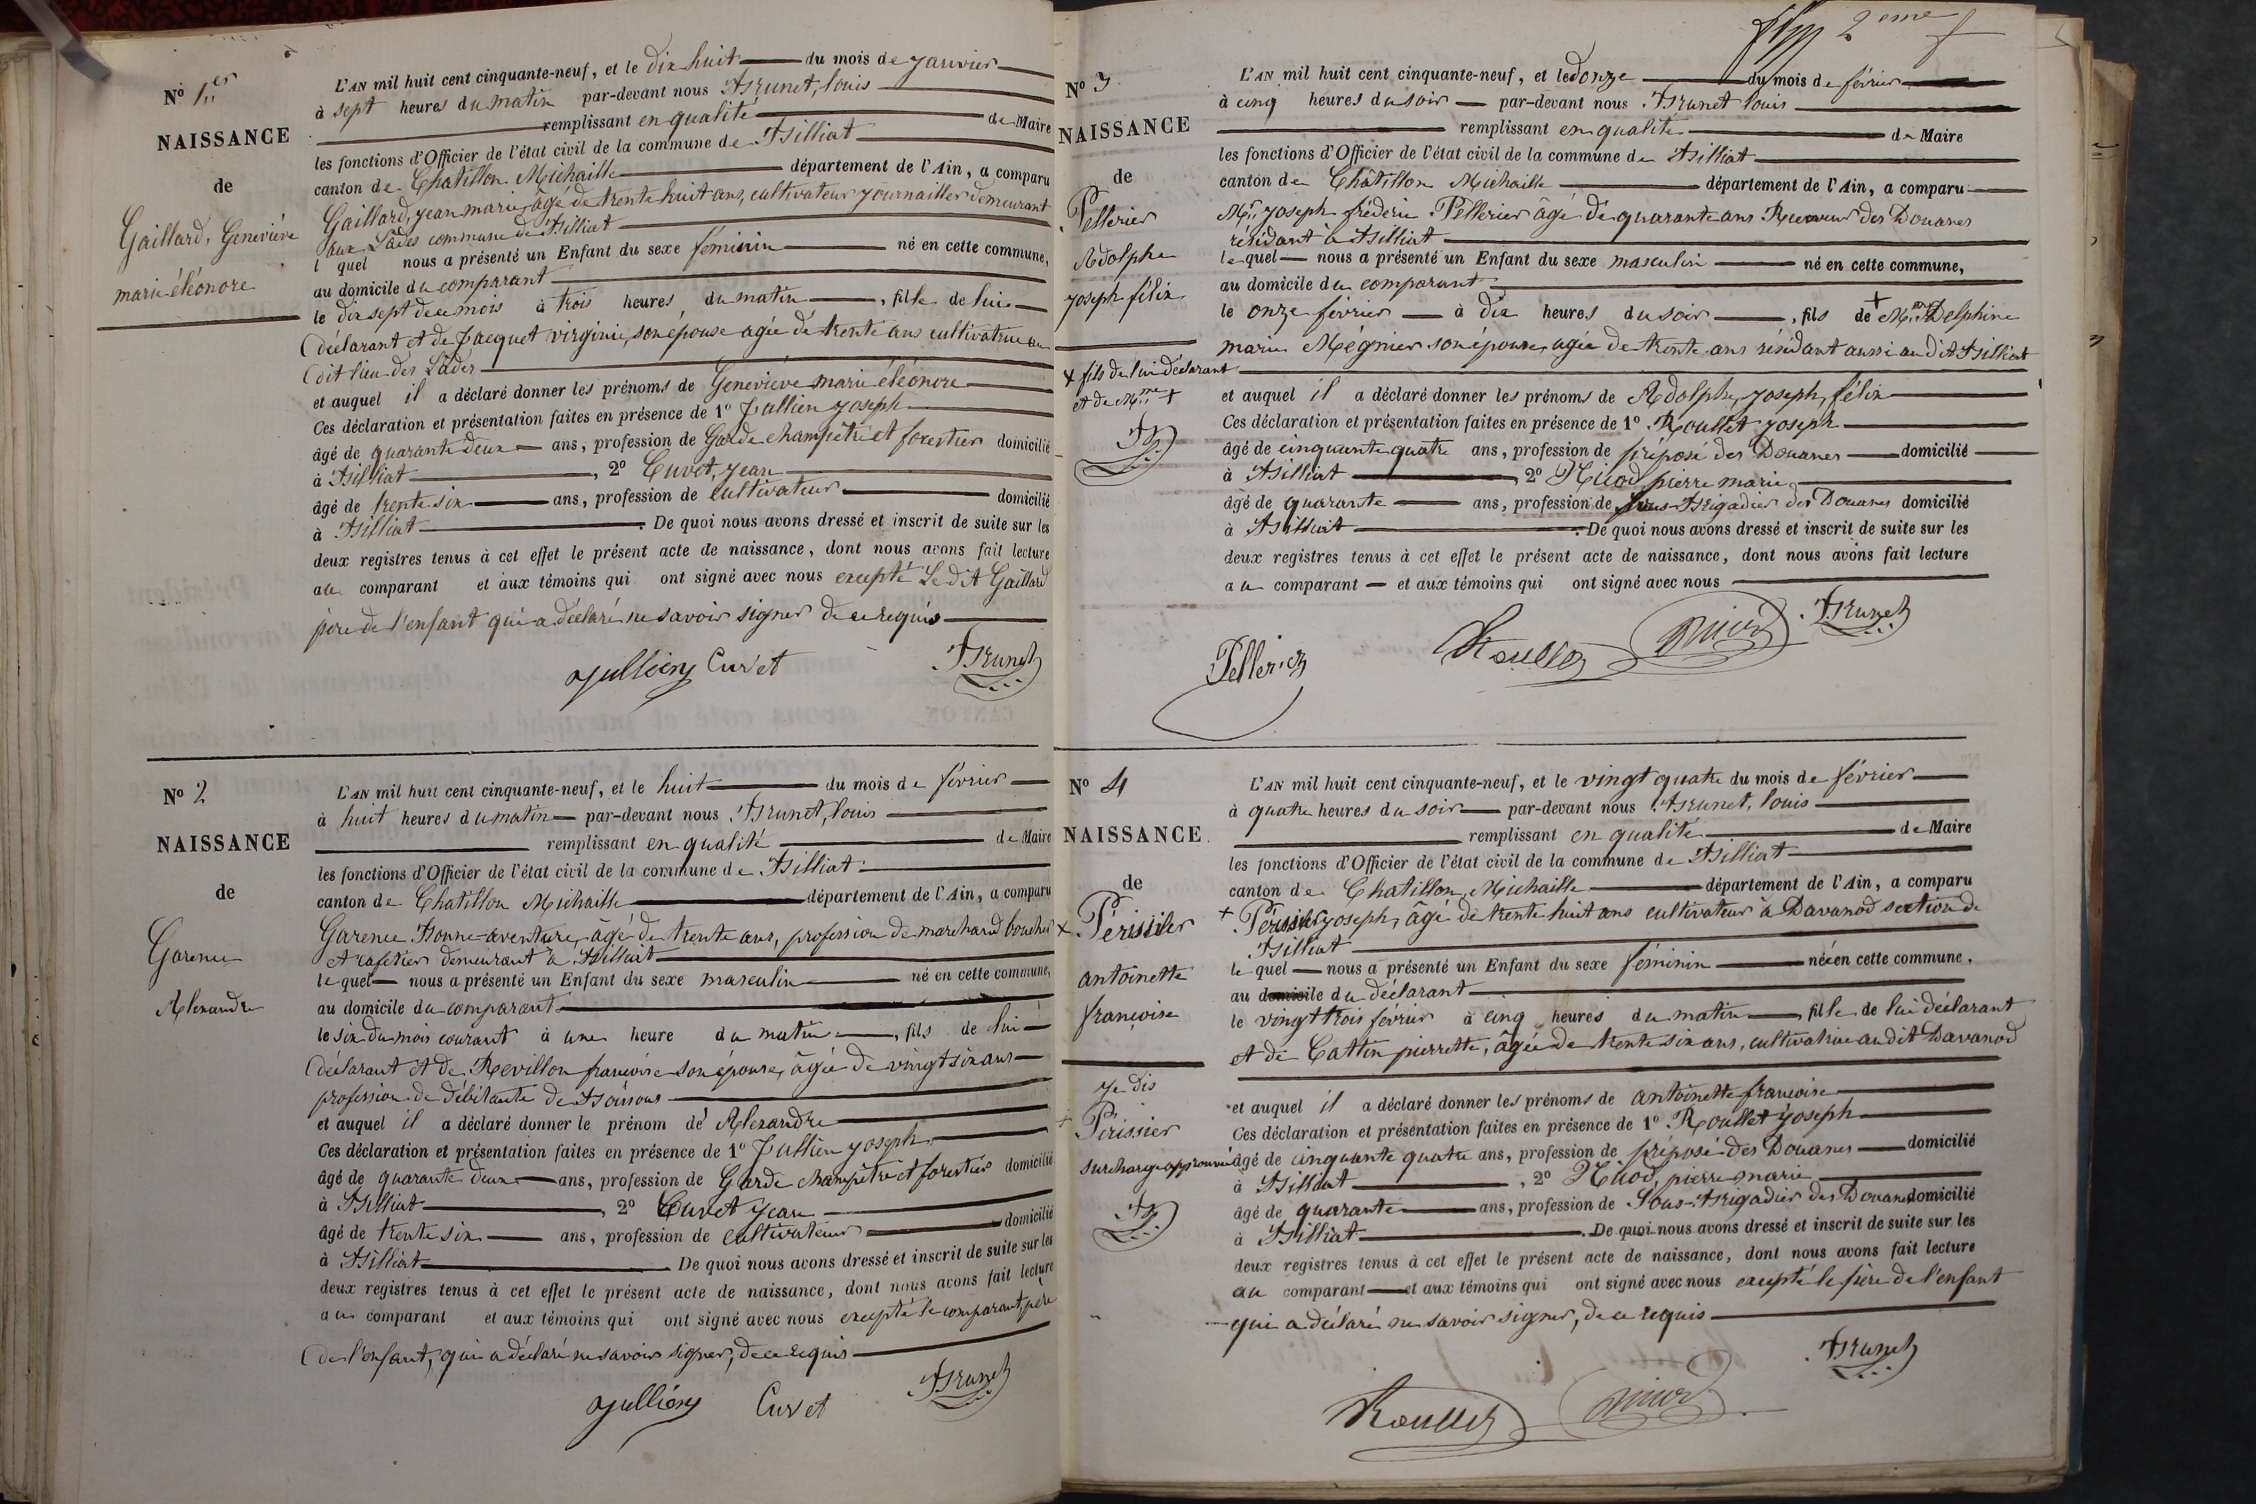 No 1er
NAISSANCE
de
Gaillard, Geneviève
marie éléonore
L'AN mil huit cent cinquante-neuf, et le dix huit du mois de janvier
à sept heures du matin par-devant nous Brunet, louis
remplissant en qualité de Maire
les fonctions d'Officier de l'état civil de la commune de Billiat
canton de Chatillon Michaille département de l'Ain, a comparu
Gaillard, jean marie, âgé de trente huit ans, cultivateur journaillier demeurant
aux Lades commune de Billiat
lequel nous a présenté un Enfant du sexe féminin né en cette commune,
au domicile du comparant
le dix sept de ce mois à trois heures du matin, fille de lui
déclarant et de Jacquet virginie, son épouse agée de trente ans cultivatrice au
dit lieu des Lades
et auquel il a déclaré donner les prénoms de Geneviève marie éléonore
Ces déclaration et présentation faites en présence de 1o Jullien joseph
âgé de quarante deux ans, profession de Garde champêtre et forestier domicilié
à Billiat, 2o Cuvet, jean
âgé de trente six ans, profession de cultivateur domicilié
à Billiat. De quoi nous avons dressé et inscrit de suite sur les
deux registres tenus à cet effet le présent acte de naissance, dont nous avons fait lecture
au comparant et aux témoins qui ont signé avec nous excepté Le dit Gaillard
père de l'enfant qui a déclaré ne savoir signer de ce requis
jullieny Cuvet Brunet
No 2
NAISSANCE
de
Garence
Alexandre
L'AN mil huit cent cinquante-neuf, et le huit du mois de février
à huit heures du matin par-devant nous Brunet, louis
remplissant en qualité de Maire
les fonctions d'Officier de l'état civil de la commune de Billiat
canton de Chatillon Michaille département de l'Ain, a comparu
Garence Bonne-aventure, âgé de trente ans, profession de marchand boucher
et cafetier demeurant à Billiat
lequel nous a présenté un Enfant du sexe masculin né en cette commune,
au domicile du comparant
le six du mois courant à une heure du matin, fils de lui
déclarant et de Revillon françoise son épouse, âgée de vingt six ans
profession de débitante de boissons
et auquel il a déclaré donner le prénom de Alexandre
Ces déclaration et présentation faites en présence de 1o Jullien joseph
âgé de quarante deux ans, profession de Garde champêtre et forestier domicilié
à Billiat, 2o Cuvet jean
âgé de trente six ans, profession de cultivateur domicilié
à Billiat. De quoi nous avons dressé et inscrit de suite sur les
deux registres tenus à cet effet le présent acte de naissance, dont nous avons fait lecture
au comparant et aux témoins qui ont signé avec nous excepté le comparant, père
de l'enfant, qui a déclaré ne savoir signer, de ce requis
jullieny Cuvet Brunet
2eme f
No 3
NAISSANCE
de
Pellerier
Adolphe
joseph félix
+ fils de lui déclarant
et de Mme +
L'AN mil huit cent cinquante-neuf, et le donze du mois de février
à cinq heures du soir par-devant nous Brunet louis
remplissant en qualité de Maire
les fonctions d'Officier de l'état civil de la commune de Billiat
canton de Châtillon Michaille département de l'Ain, a comparu
Mr joseph fréderic Pellerier âgé de quarante ans Receveur des Douanes
résidant à Billiat
lequel nous a présenté un Enfant du sexe masculin né en cette commune,
au domicile du comparant
le onze février à dix heures du soir, fils de + Mme Delphine
marie Mégnier son épouse, agée de trente ans résidant aussi au dit Billiat
et auquel il a déclaré donner les prénoms de Adolphe, joseph, félix
Ces déclaration et présentation faites en présence de 1o Roullet joseph
âgé de cinquante quatre ans, profession de préposé des Douanes domicilié
à Billiat, 2o Nicod, pierre marie
âgé de quarante ans, profession de sous-Brigadier des Douanes domicilié
à Billiat. De quoi nous avons dressé et inscrit de suite sur les
deux registres tenus à cet effet le présent acte de naissance, dont nous avons fait lecture
au comparant et aux témoins qui ont signé avec nous
Pellerier Roullet Nicod Brunet
No 4
NAISSANCE
de
+ Périssier
antoinette
françoise
je dis
+ Périssier
surcharge approuvé
L'AN mil huit cent cinquante-neuf, et le vingt quatre du mois de février
à quatre heures du soir par-devant nous Brunet, louis
remplissant en qualité de Maire
les fonctions d'Officier de l'état civil de la commune de Billiat
canton de Chatillon Michaille département de l'Ain, a comparu
+ Périssier joseph, âgé de trente huit ans cultivateur à Davanod section de
Billiat
lequel nous a présenté un Enfant du sexe féminin née en cette commune,
au domicile du déclarant
le vingt trois février à cinq heures du matin, fille de lui déclarant
et de Cattin pierrette, âgée de trente six ans, cultivatrice au dit Davanod
et auquel il a déclaré donner les prénoms de antoinette françoise
Ces déclaration et présentation faites en présence de 1o Roullet joseph
âgé de cinquante quatre ans, profession de préposé des Douanes domicilié
à Billiat, 2o Nicod, pierre marie
âgé de quarante ans, profession de Sous-Brigadier des Douanes domicilié
à Billiat. De quoi nous avons dressé et inscrit de suite sur les
deux registres tenus à cet effet le présent acte de naissance, dont nous avons fait lecture
au comparant et aux témoins qui ont signé avec nous excepté le père de l'enfant
qui a déclaré ne savoir signer, de ce requis
Roullet Nicod Brunet